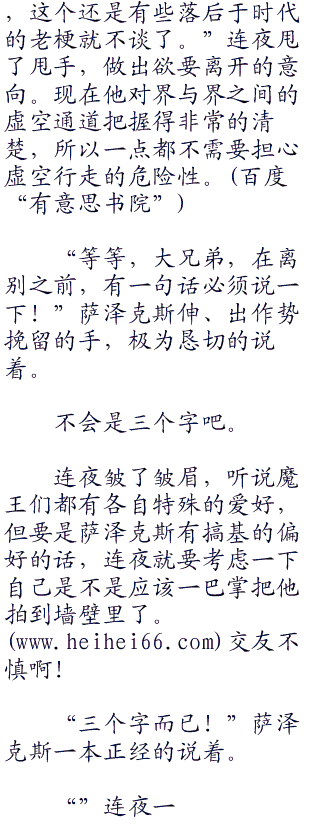 ，这个还是有些落后于时代
的老梗就不谈了。”连夜甩
了甩手，做出欲要离开的意
向。现在他对界与界之间的
虚空通道把握得非常的清
楚，所以一点都不需要担心
虚空行走的危险性。(百度
“有意思书院”)
“等等，大兄弟，在离
别之前，有一句话必须说一
下！”萨泽克斯伸、出作势
挽留的手，极为恳切的说
着。
不会是三个字吧。
连夜皱了皱眉，听说魔
王们都有各自特殊的爱好，
但要是萨泽克斯有搞基的偏
好的话，连夜就要考虑一下
自己是不是应该一巴掌把他
拍到墙壁里了。
(www.heihei66.com)交友不
慎啊！
“三个字而已！”萨泽
克斯一本正经的说着。
“”连夜一